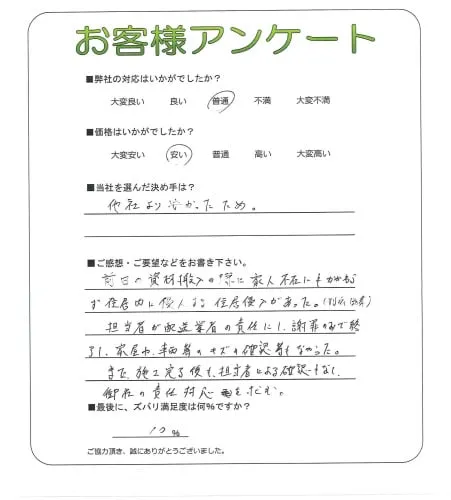 お客様アンケート
■弊社の対応はいかがでしたか？
大変良い 良い 普通 不満 大変不満
■価格はいかがでしたか？
大変安い 安い 普通 高い 大変高い
■当社を選んだ決め手は？
他社より安かったため。
■ご感想・ご要望などをお書き下さい。
前日の資材搬入の際に家人不在にもかかわらず
住居内に侵入する住居侵入があった。
担当者が配送業者の責任にし、謝罪のみで終
了し、家屋や、車両等のキズの確認等もなかった。
また、施工完了後も、担当者による確認もなし、
御社の責任対応を求む。
■最後に、ズバリ満足度は何%ですか？
10%
ご協力頂き、誠にありがとうございました。